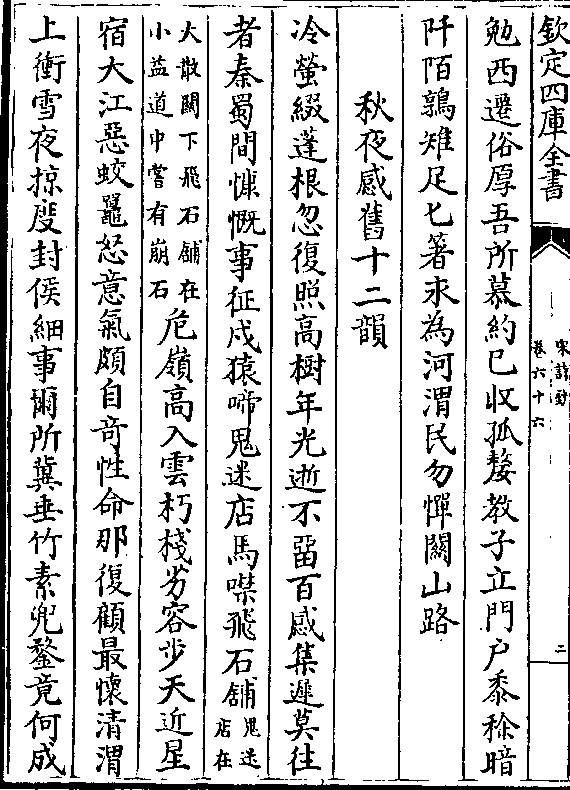 欽定四庫全書
宋詩鈔
卷六十六
二
勉西遷俗厚吾所慕約已收孤嫠教子立門戶黍稌暗
阡陌鶉雉足匕箸永為河渭民勿憚關山路
秋夜感舊十二韻
冷螢綴蓬根忽復照高樹年光逝不留百感集遲莫往
者秦蜀間慷慨事征戍猿啼鬼迷店馬噤飛石舖鬼迷店在
大散關下飛石舖在小益道中嘗有崩石危嶺高入雲朽棧劣容步天近星
宿大江惡蛟鼉怒意氣頗自奇性命那復顧最懷清渭
上衝雪夜掠度封侯細事爾所冀垂竹素兜鍪竟何成